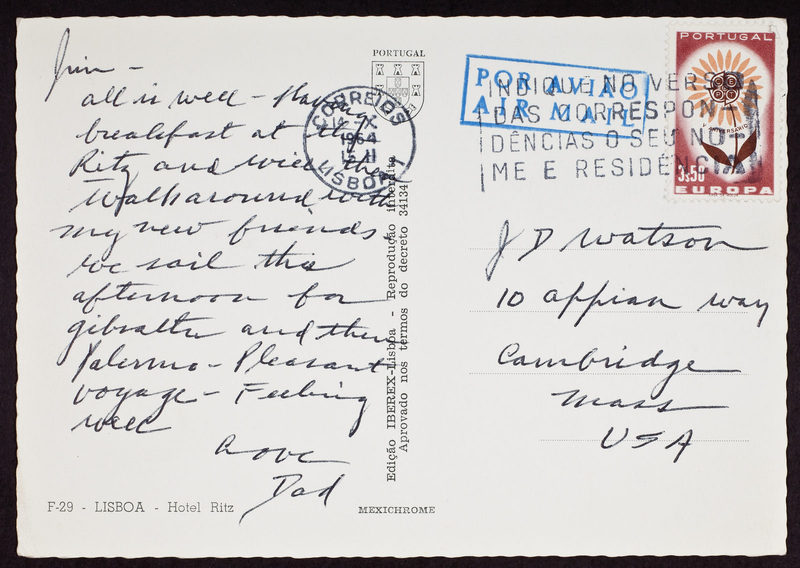 Jim —
all is well — Having
breakfast at the
Ritz and will then
Walk around with
my new friends
we sail this
afternoon for
gibralter and then
Palermo — Pleasant
voyage — Feeling
well
Love
Dad
F-29 - LISBOA - Hotel Ritz
PORTUGAL
CORREIOS
1964
LISBOA
Edição IBEREX-Lisbôa - Reprodução interdita
Aprovado nos termos do decreto 34134
MEXICHROME
POR AVIÃO
AIR MAIL
INDIQUE NO VERSO
DAS CORRESPON-
DÊNCIAS O SEU NO-
ME E RESIDÊNCIA
PORTUGAL
3$50
EUROPA
J D Watson
10 appian way
Cambridge
Mass
USA